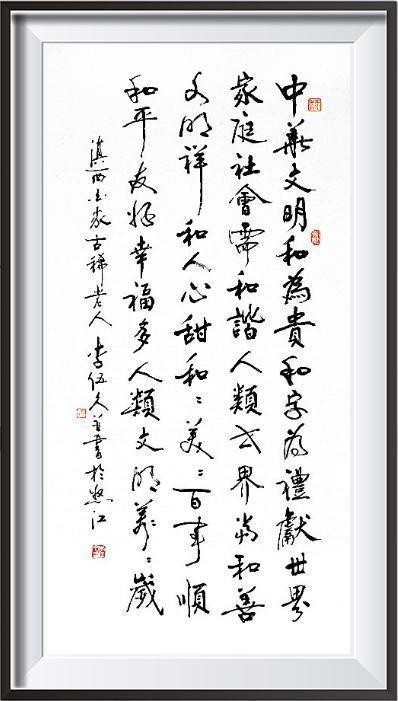 中華文明和為貴和字為禮獻世界
家庭社會需和諧人類世界尚和善
文明祥和人心甜和〻美〻百事順
和平友好幸福多人類文明萬〻歲
滇西古稀老人李伍久並書於怒江